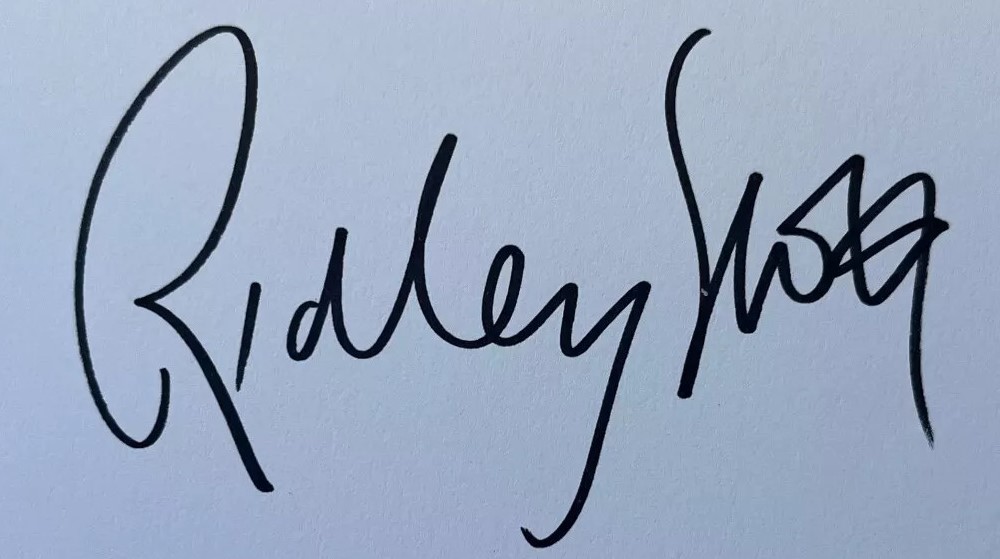 Ridley Scott